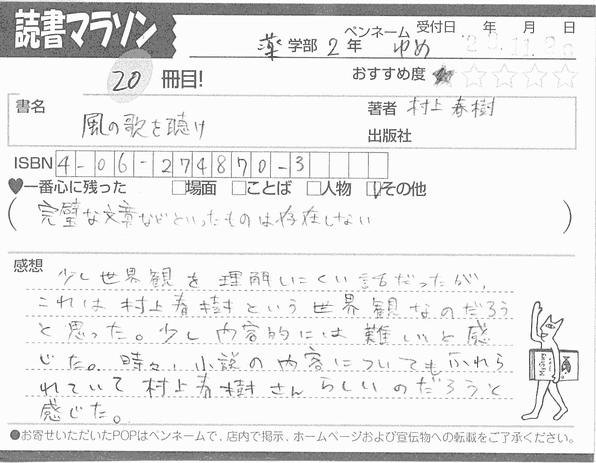 読書マラソン
ペンネーム 受付日 年 月 日
薬 学部 2年 ゆめ
20 冊目! おすすめ度 ★☆☆☆☆
書名 風の歌を聴け
著者 村上春樹
出版社
ISBN 4-06-274870-3
♥一番心に残った □場面 □ことば □人物 ☑その他
(完璧な文章などといったものは存在しない)
感想
少し世界観を理解しにくい話だったが、
これは村上春樹という世界観なのだろう
と思った。少し内容的には難しいと感
じた。時々、小説の内容についてもふれら
れていて村上春樹さんらしいのだろうと
感じた。
●お寄せいただいたPOPはペンネームで、店内で掲示、ホームページおよび宣伝物への転載をご了承ください。